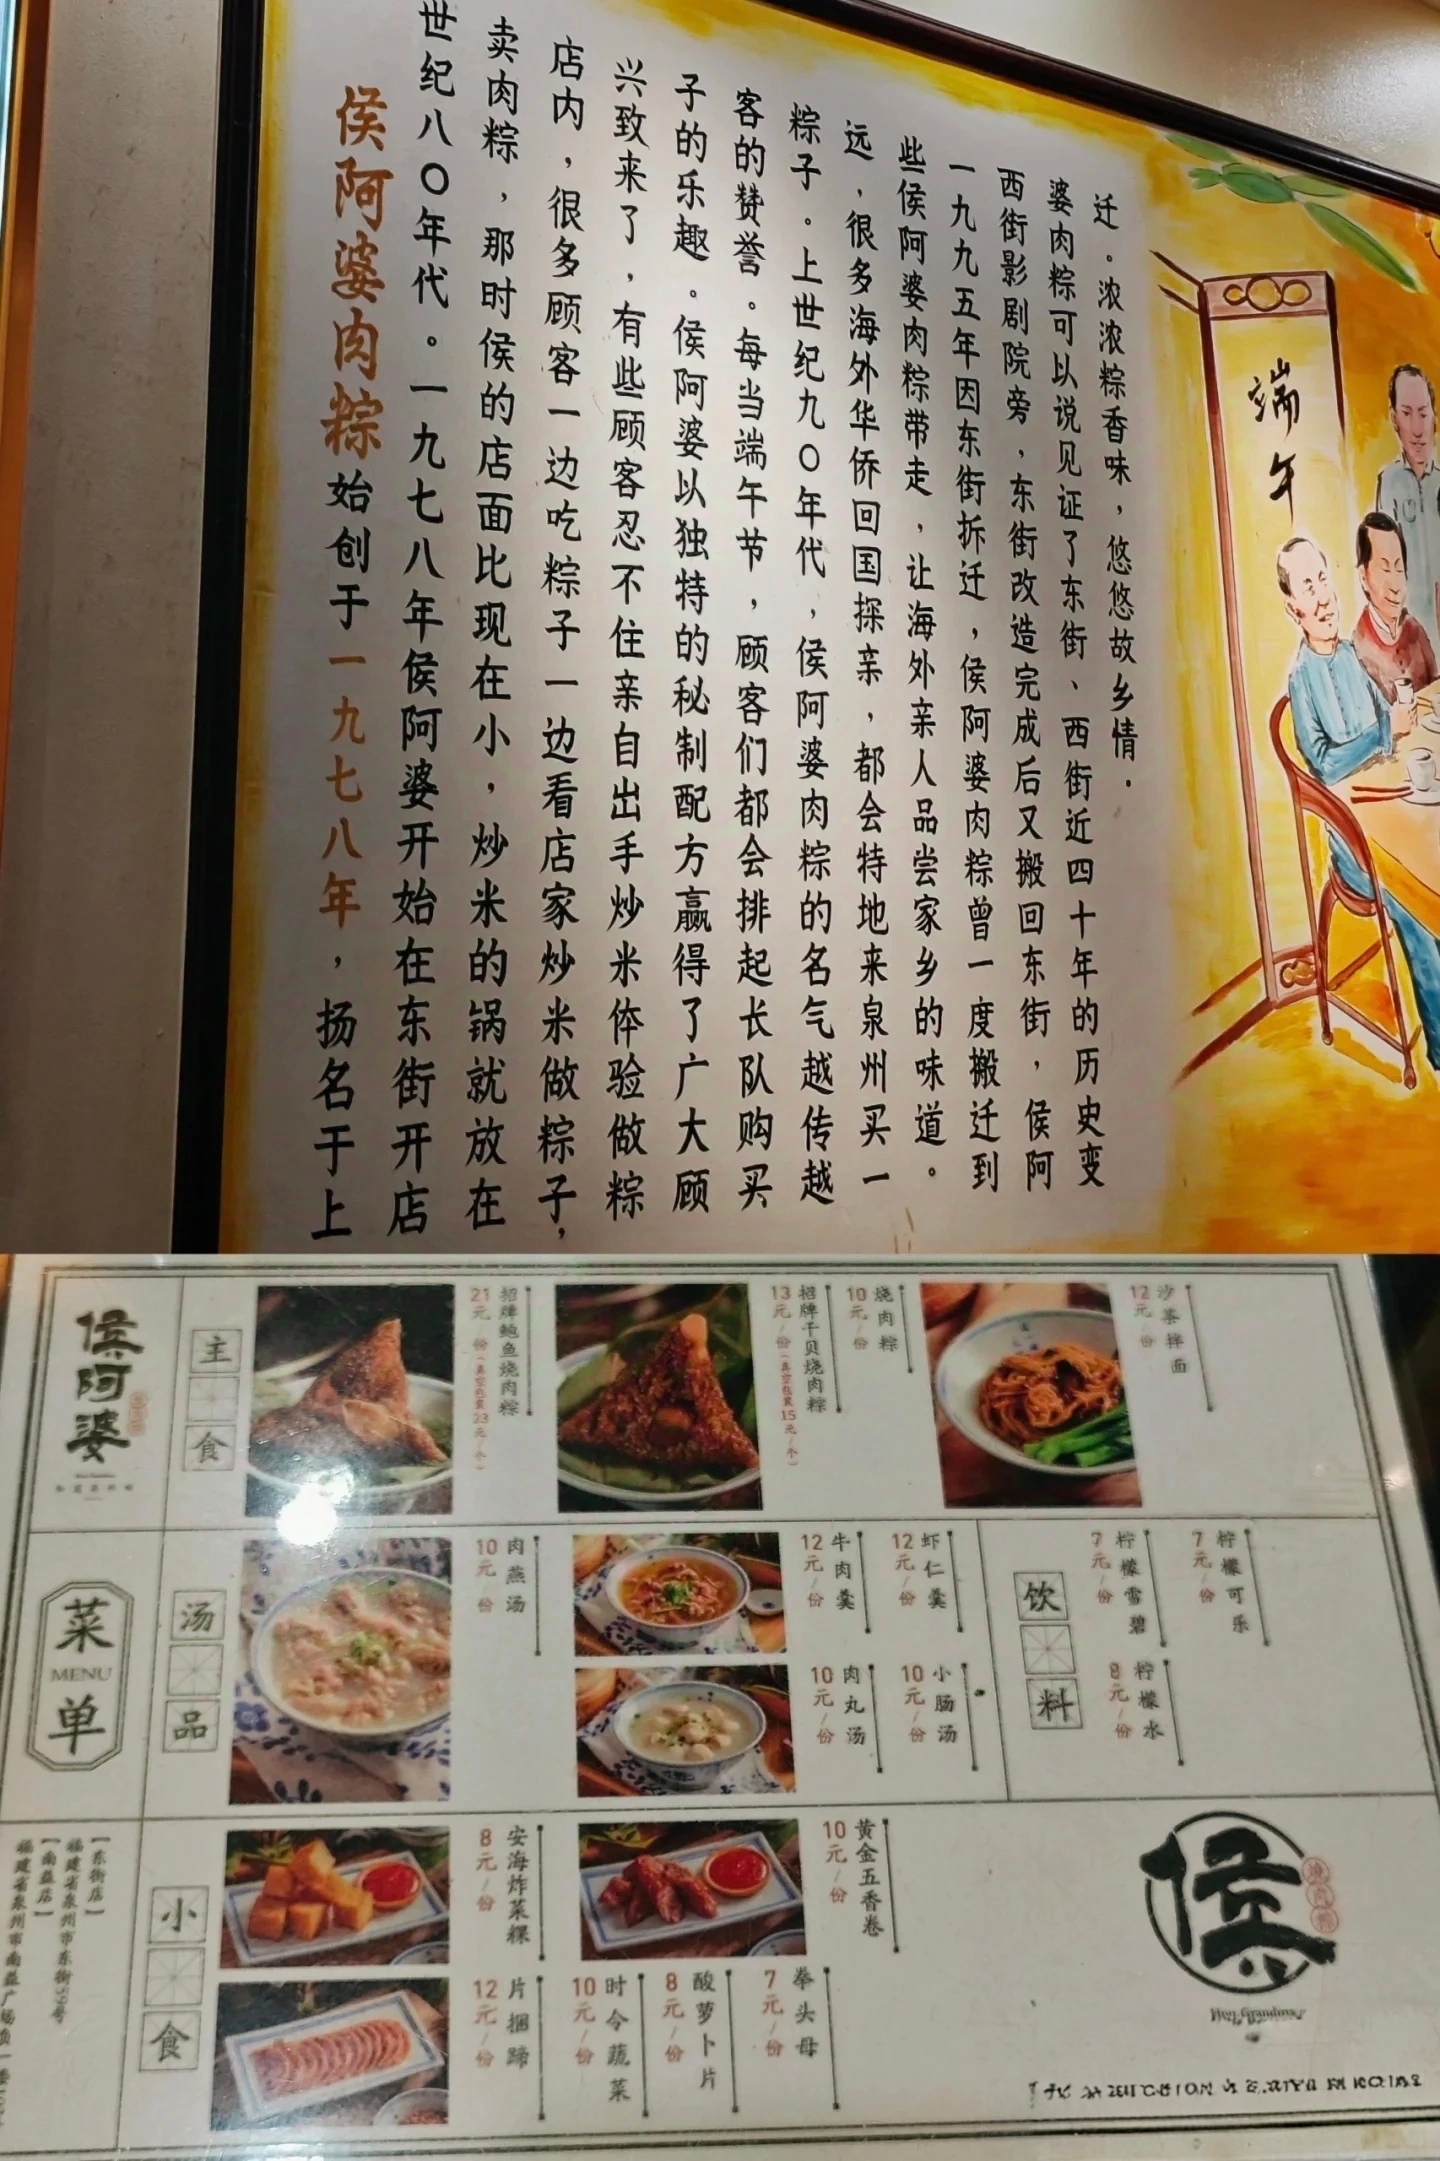 侯阿婆肉粽始创于一九七八年，扬名于上
世纪八〇年代。一九七八年侯阿婆开始在东街开店
卖肉粽，那时侯的店面比现在小，炒米的锅就放在
店内，很多顾客一边吃粽子一边看店家炒米做粽子，
兴致来了，有些顾客忍不住亲自出手炒米体验做粽
子的乐趣。侯阿婆以独特的秘制配方赢得了广大顾
客的赞誉。每当端午节，顾客们都会排起长队购买
粽子。上世纪九〇年代，侯阿婆肉粽的名气越传越
远，很多海外华侨回国探亲，都会特地来泉州买一
些侯阿婆肉粽带走，让海外亲人品尝家乡的味道。
一九九五年因东街拆迁，侯阿婆肉粽曾一度搬迁到
西街影剧院旁，东街改造完成后又搬回东街，侯阿
婆肉粽可以说见证了东街、西街近四十年的历史变
迁。浓浓粽香味，悠悠故乡情.
端午
侯阿婆
菜单
MENU
主食
招牌鲍鱼烧肉粽
21元/份(真空包装23元/个)
招牌干贝烧肉粽
13元/份(真空包装15元/个)
烧肉粽
10元/份
沙茶拌面
12元/份
汤品
肉燕汤
10元/份
牛肉羹
12元/份
虾仁羹
12元/份
肉丸汤
10元/份
小肠汤
10元/份
饮料
柠檬雪碧
7元/份
柠檬可乐
7元/份
柠檬水
8元/份
小食
安海炸菜粿
8元/份
黄金五香卷
10元/份
片捆蹄
12元/份
时令蔬菜
10元/份
酸萝卜片
8元/份
拳头母
7元/份
【东街店】
福建省泉州市东街59号
【南益店】
福建省泉州市南益广场负一楼
侯